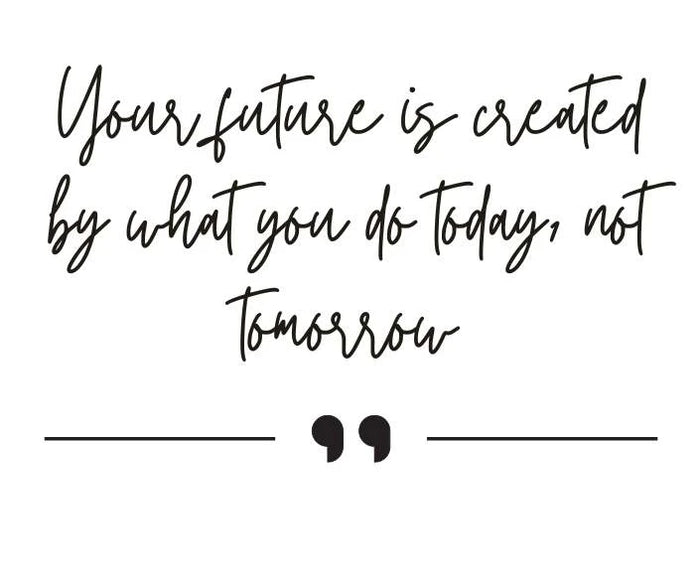 Your future is created
by what you do today, not
tomorrow
”